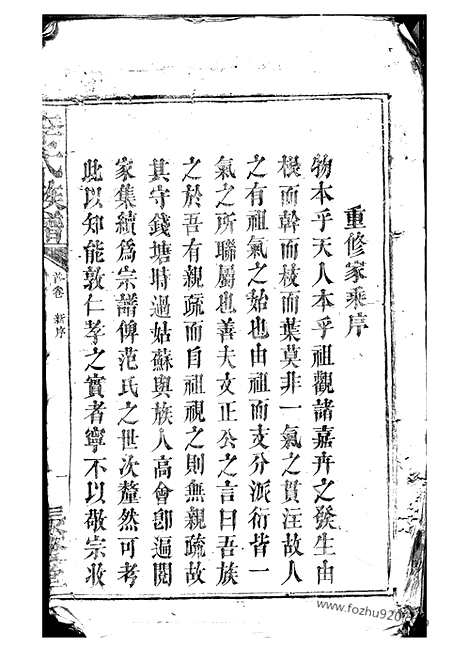 重修家乘序
物本乎天人本乎祖觀諸嘉卉之發生由
根而幹而枝而葉莫非一氣之貫注故人
之有祖氣之始也由祖而支分派衍皆一
氣之所聯屬也善夫文正公之言曰吾族
之於吾有親疏而自祖視之則無親疏故
其守錢塘時過姑蘇與族人高會卽遍閱
家集續爲宗譜俾范氏之世次釐然可考
此以知能敦仁孝之實者寧不以敬宗收
氏族譜
首卷 新序
www.fozhu920.com